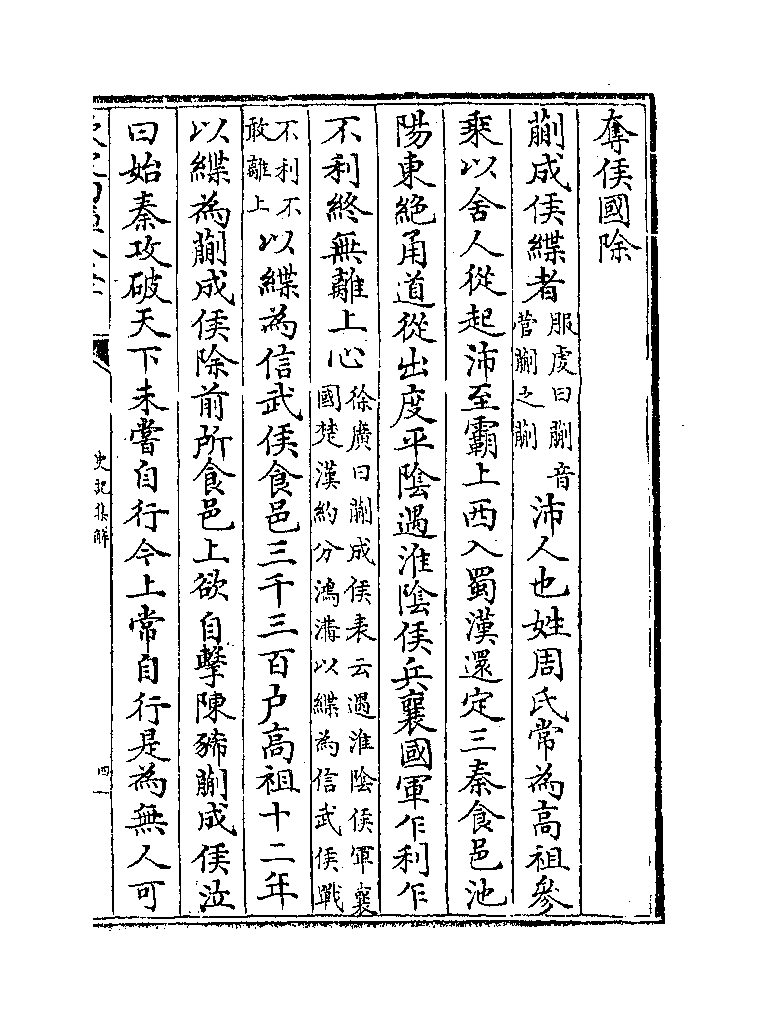 奪侯國除
蒯成侯緤者服䖍曰蒯音菅蒯之蒯沛人也姓周氏常為髙祖參
乘以舍人從起沛至霸上西入蜀漢還定三秦食邑池
陽東絶甬道從出度平隂遇淮隂侯兵襄國軍乍利乍
不利終無離上心徐廣曰蒯成侯表云遇淮隂侯軍襄國楚漢約分鴻溝以緤為信武侯戰
不利不敢離上以緤為信武侯食邑三千三百户髙祖十二年
以緤為蒯成侯除前所食邑上欲自擊陳豨蒯成侯泣
曰始秦攻破天下未嘗自行今上常自行是為無人可
史記集解
四一